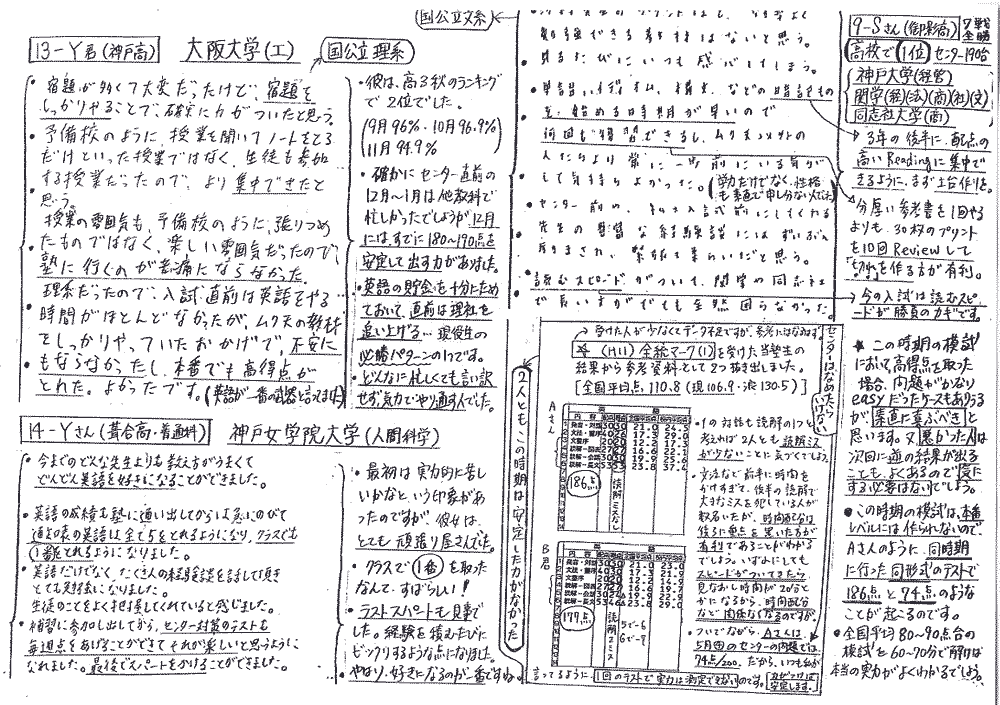 国公立文系
13-Y君(神戸高) 大阪大学(工) 国公立理系
・宿題が多くて大変だったけど、宿題を
しっかりやることで、確実に力がついたと思う。
・予備校のように、授業を聞いてノートをとる
だけといった授業ではなく、生徒も参加
する授業だったので、より集中できたと
思う。
・授業の雰囲気も、予備校のように、張りつめ
たものではなく、楽しい雰囲気だったので、
塾に行くのが苦痛にならなかった。
・理系だったので、入試直前は英語をやる
時間がほとんどなかったが、ムク天の教材
をしっかりやっていたおかげで、不安に
もならなかったし、本番でも高得点が
とれた。よかったです。(英語が一番の武器と言ってました)
・彼は、高3秋のランキング
で2位でした。
(9月96%・10月96.9%
11月94.9%)
・確かにセンター直前の
12月～1月は他教科で
忙しかったでしょうが12月
にはすでに180～190点を
安定して出す力がありました。
・英語の貯金を十分ためて
おいて、直前は理社を
追い上げる…現役生の
必勝パターンの1つです。
・どんなに忙しくても言い訳
せず、気力でやり通す人でした。
14-Yさん(葺合高・普通科) 神戸女学院大学(人間科学)
・今までのどんな先生よりも教え方がうまくて
どんどん英語を好きになることができました。
・英語の成績も塾に通い出してからは急にのびて
通知表の英語は全て5をとれるようになり、クラスでも
1番をとれるようになりました。
・英語だけでなく、たくさんの経験談を話して頂き
とても刺激になりました。
・生徒のことをよく把握してくれていると感じました。
・補習に参加し出してから、センター対策のテストも
毎週点をあげることができてそれが楽しいと思うように
なれました。最後でスパートをかけることができました。
・最初は実力的に苦し
いかなという印象があ
ったのですが、彼女は、
とても頑張り屋さんでした。
・クラスで1番を取った
なんて、すばらしい!
・ラストスパートも見事で
した。経験を積むたびに
ビックリするような点になりました。
・やはり、好きになるのが一番ですね。
勉強できる教材はないと思う。
見るたびにいつも感心してしまう。
・単語、イディオム、構文、などの暗記もの
を始める時期が早いので
何回も復習できるし、ムク天以外の
人たちより常に一歩前にいる気が
して気持ちよかった。(学力だけでなく、性格も素直で申し分ない人でした)
先生の豊富な経験談にはずいぶん
励まされ、緊張も和らいだと思う。
・読むスピードがついて、関学の同志社
で長い文がでても全然困らなかった。
9-Sさん(御影高) 7戦全勝
高校で1位 センター190台
神戸大学(経営)
関学(経)(法)(商)(社)(文)
同志社大学(商)
3年の後半に、配点の
高いReadingに集中で
きるように、まず土台作りを。
分厚い参考書を1回やる
よりも、30枚のプリント
を10回Reviewして
「力」を作る方が有利。
今の入試は読むスピ
ードが勝負のカギです。
★この時期の模試
において、高得点を取った
場合、問題がかなり
easyだったケースもありうる
が「素直に喜ぶべき」と
思います。又、悪かった人は
次回に逆の結果が出る
こともよくあるので、気に
する必要はないでしょう。
●この時期の模試は、本番
レベルには作られないので
Aさんのように、同時期
に行った同形式のテストで
186点と74点のような
ことが起こるのです。
・全国平均80～90点台の
模試を60～70分で解けば
本当の実力がよくわかるでしょう。
センターはなめたらいけない
2人ともこの時期は安定した力がなかった
受けた人が少なくてデータ不足ですが、参考にはなるはず。
☆(H11)全統マーク(1)を受けた当塾生の
結果から参考資料として2つ抜き出しました。
[全国平均点110.8(現106.9・浪130.5)]
Aさん
186点
読解ミスなし
Bさん
177点
読解ミス
5で-6
6で-7
・1の対話も読解の1つと
考えれば2人とも読解ミス
が少ないことに気づくでしょう。
・文法など前半に時間を
かけすぎて、後半の読解で
大きなミスを犯している人が
数多いたが、時間配分は
後ろに重点を置いた方が
有利であることがわかる
でしょう。いずれにしても
スピードがついてきたら
見なおし時間が20分と
かになるから、時間配分
など関係なくなるのですが。
・ついでながら、Aさんは
5月のセンターの問題では
74点/200。だから、いつも私が
言ってるように、1回のテストで実力は測定できないのです。力がつけば安定します。